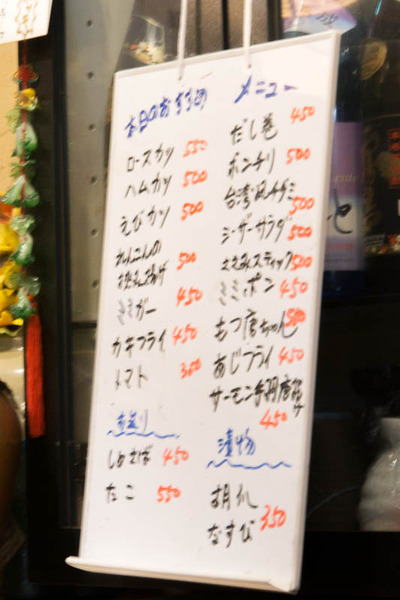 本日のおすすめ
ロースカツ 550
ハムカツ 500
えびカツ 500
れんこんの
はさみ揚げ 500
ミミガー 450
カキフライ 450
トマト 350
しめさば 450
たこ 550
メニュー
だし巻 450
ボンチリ 500
台湾風 500
シーザーサラダ 500
スティック 500
ミミポン 450
もつ唐ちゃん 500
あじフライ 450
サーモン
450
漬物
胡瓜
なすび 350